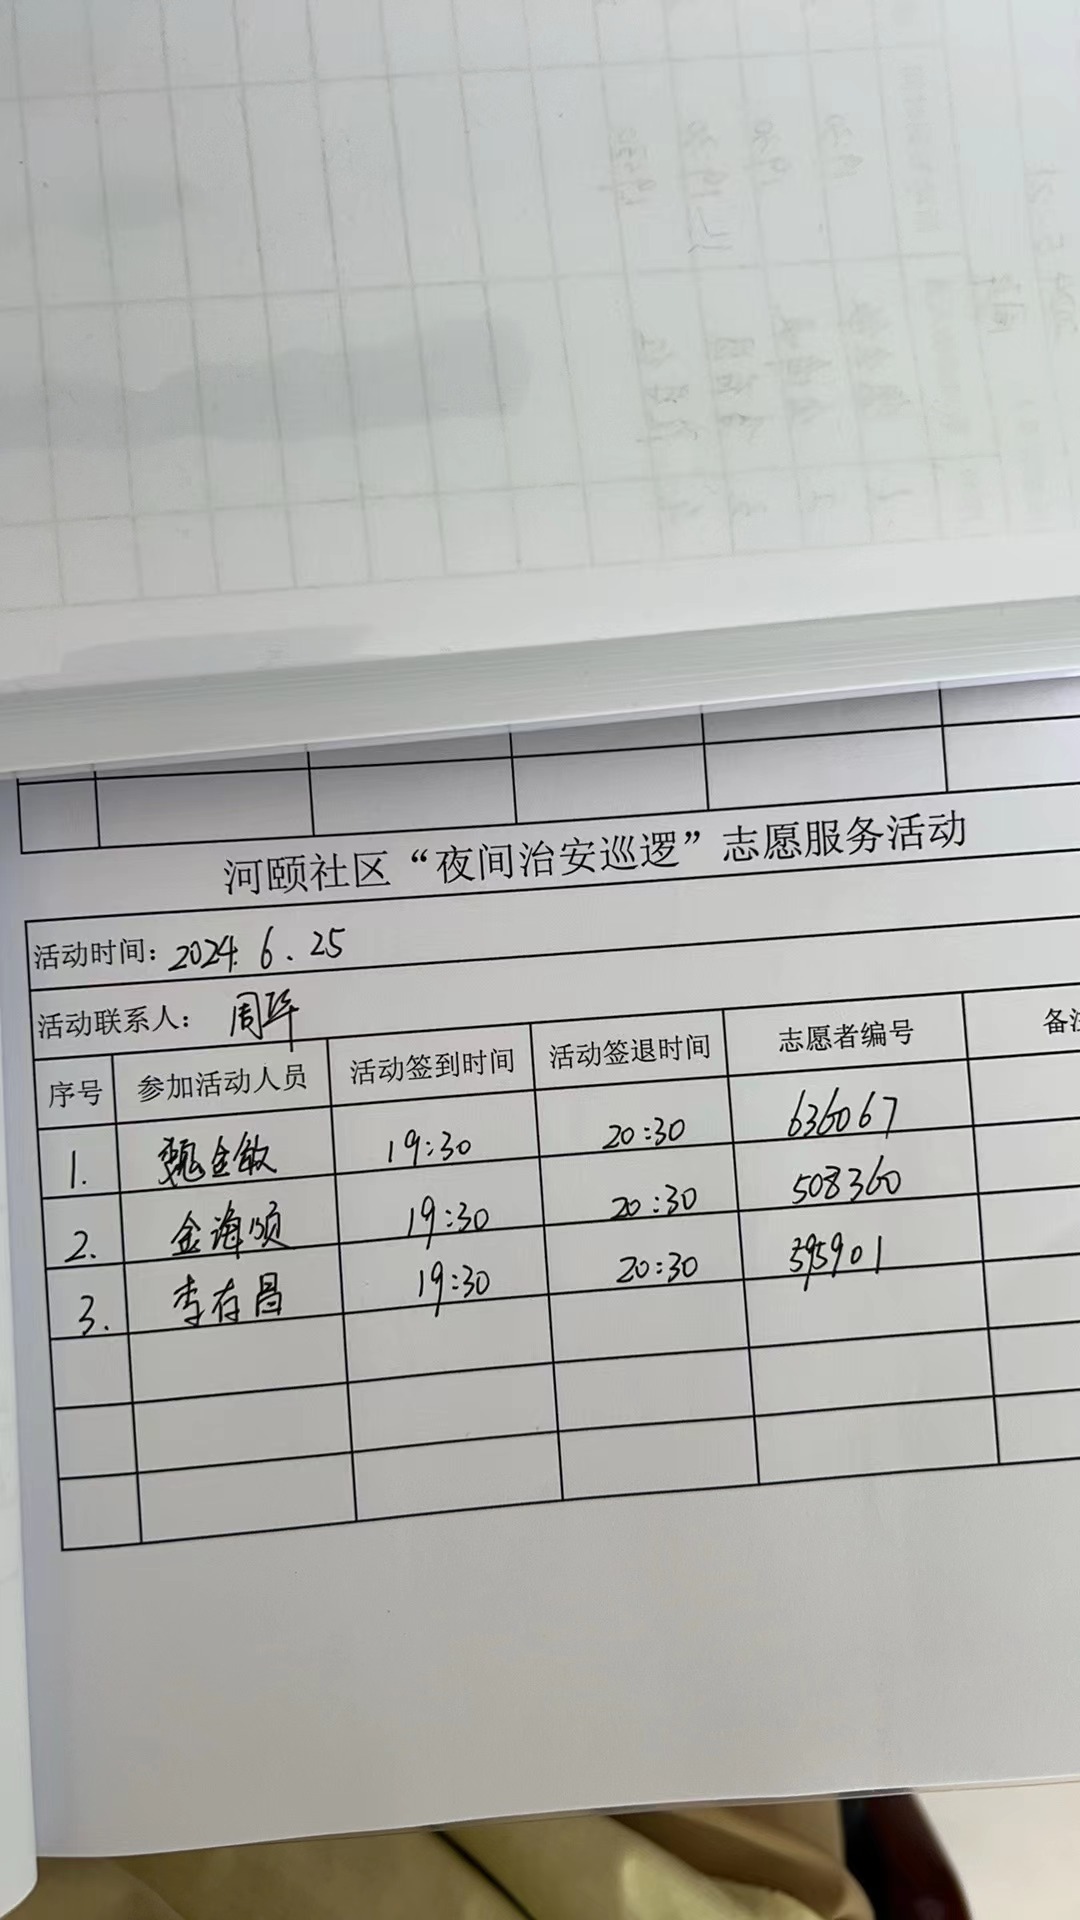 河颐社区“夜间治安巡逻”志愿服务活动
活动时间：2024.6.25
活动联系人：周华
序号 参加活动人员 活动签到时间 活动签退时间 志愿者编号 备注
1. 魏金敏 19:30 20:30 636067
2. 金海顺 19:30 20:30 508360
3. 李存昌 19:30 20:30 395901